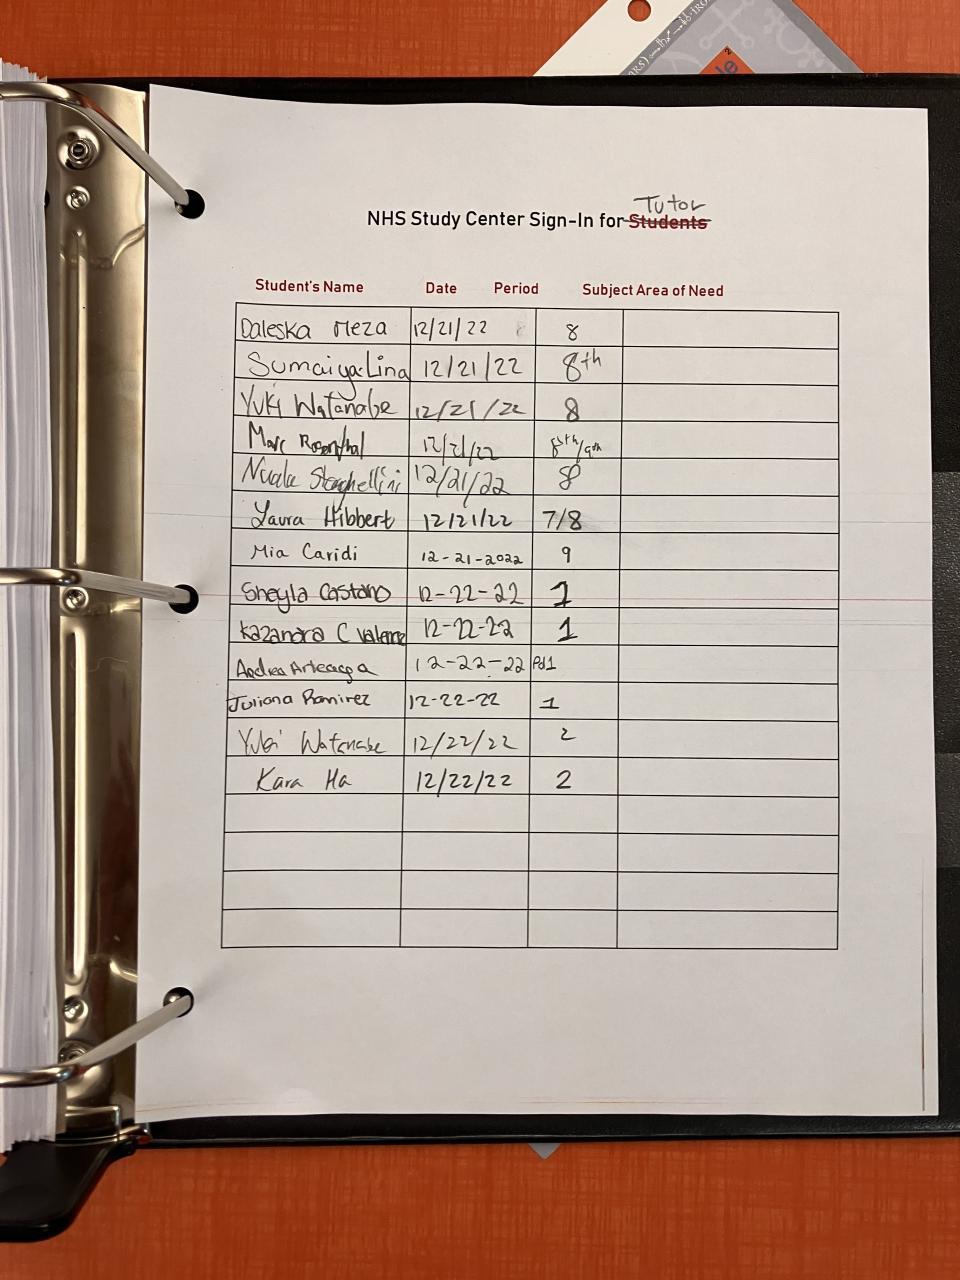 Tutor
NHS Study Center Sign-In for Students
Student's Name Date Period Subject Area of Need
Daleska Meza 12/21/22 8
Sumaiya Lina 12/21/22 8th
Yuki Watanabe 12/21/22 8
Marc Rosenthal 12/21/22 8th/9th
Nuala 12/21/22 8
Laura Hibbert 12/21/22 7/8
Mia Caridi 12-21-2022 9
Sheyla Castano 12-22-22 1
Kazandra C 12-22-22 1
Andrea Arteaga 12-22-22 Pd1
Juliana Ramirez 12-22-22 1
Yuki Watanabe 12/22/22 2
Kara Ha 12/22/22 2